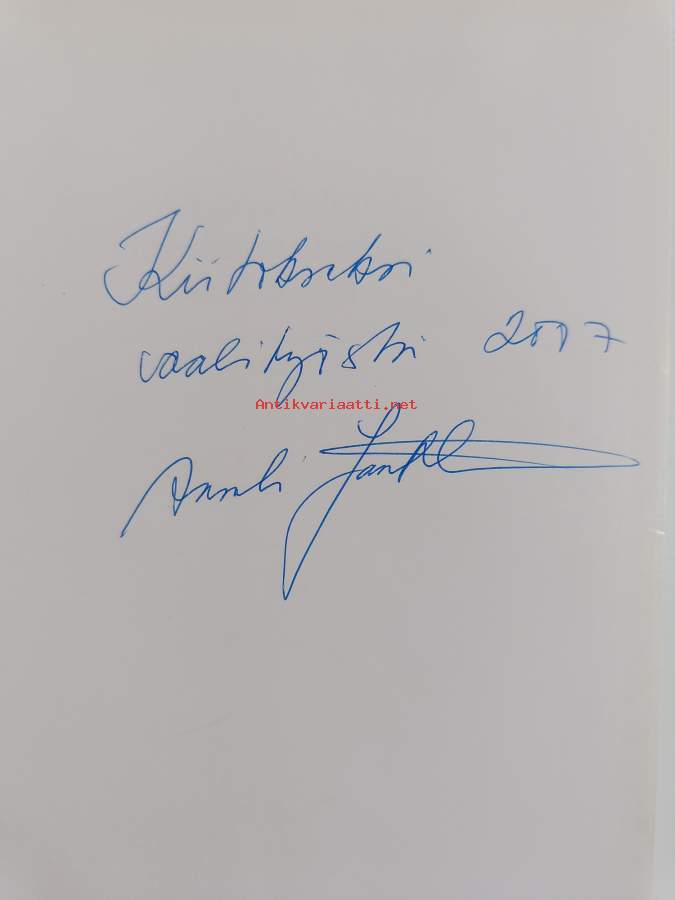 Kiitokseksi
vaalityöstä 2007
Antikvariaatti.net